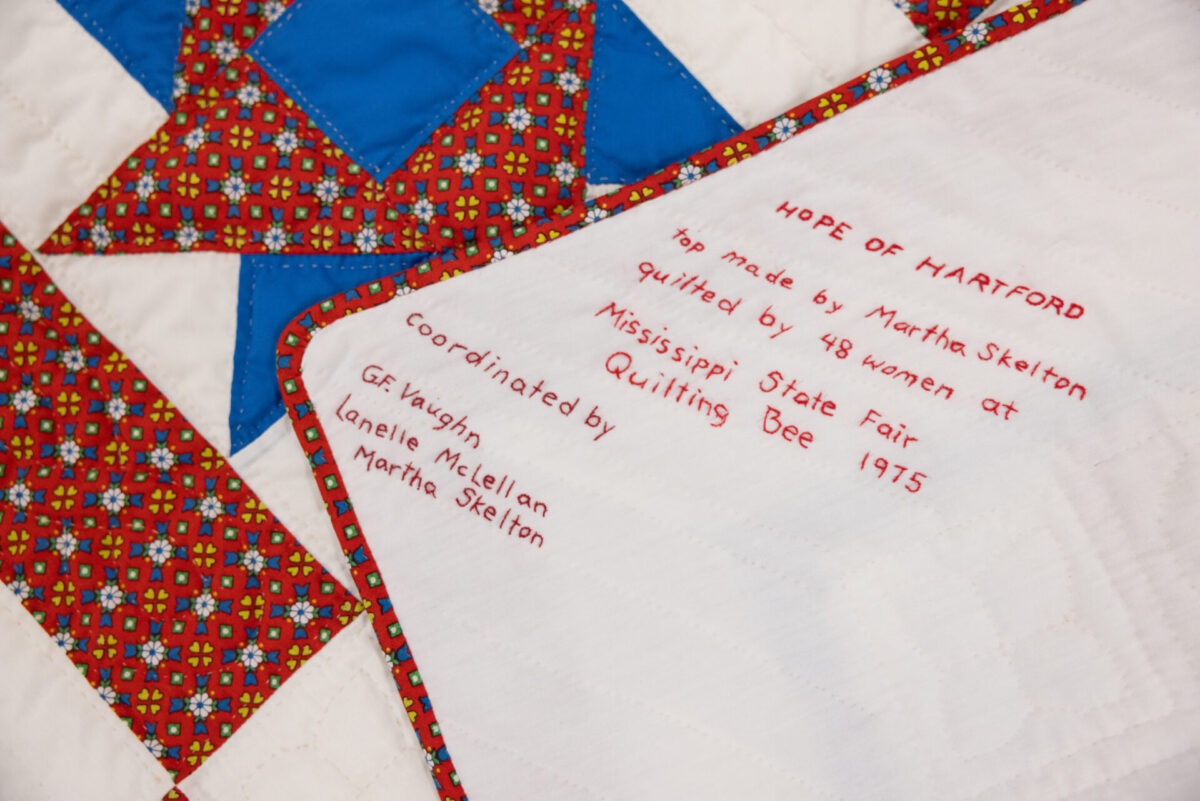 HOPE OF HARTFORD
top made by Martha Skelton
quilted by 48 women at
Mississippi State Fair
Quilting Bee 1975
coordinated by
G.F. Vaughn
Lanelle McLellan
Martha Skelton